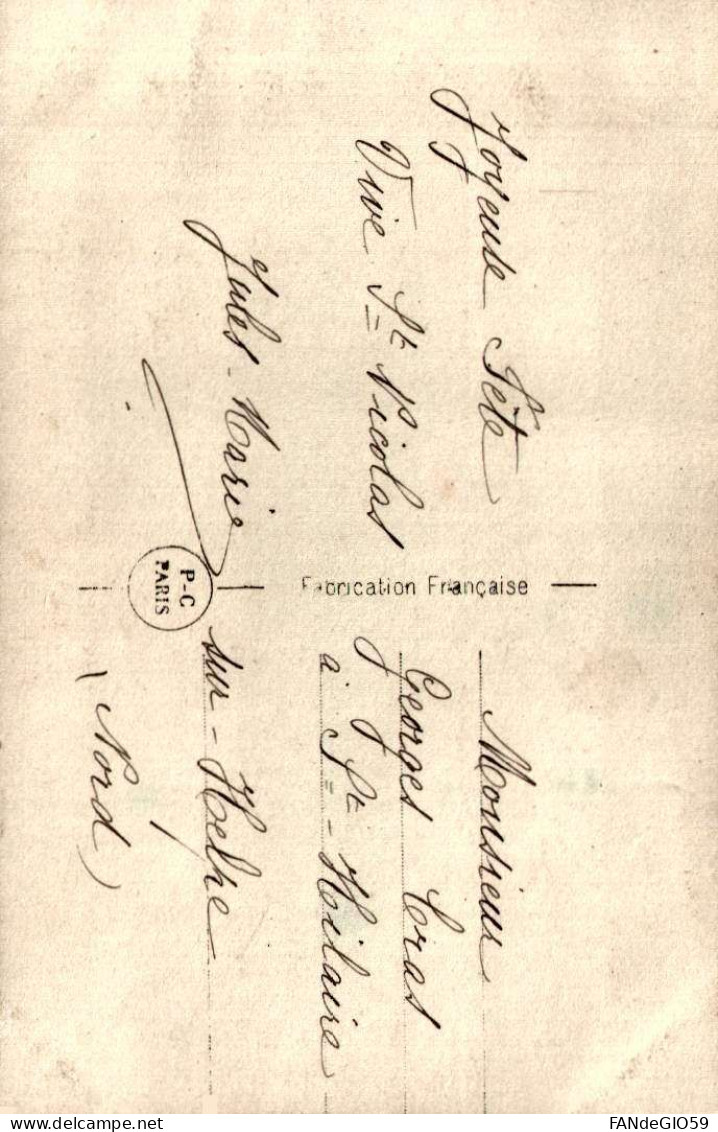 Joyeuse Fête
Vive St Nicolas
Jules-Marie
Fabrication Française
P-C
PARIS
Monsieur
Georges Cras
à St-Hilaire
sur-Helpe
(Nord)
delcampe.net
FANdeGIO59